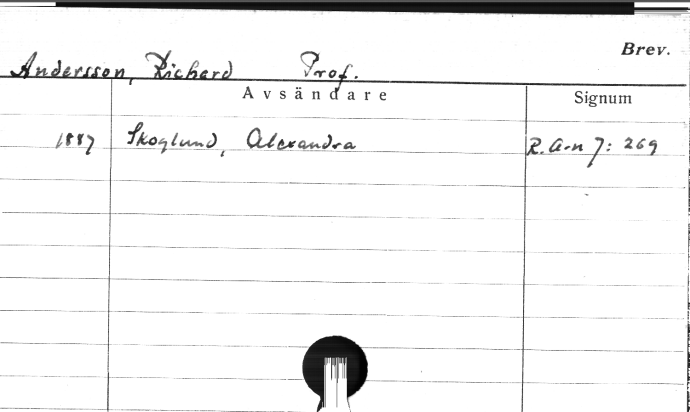 Brev.
Andersson, Richard Prof.
Avsändare Signum
1887 Skoglund, Alexandra R. A-n 7: 269